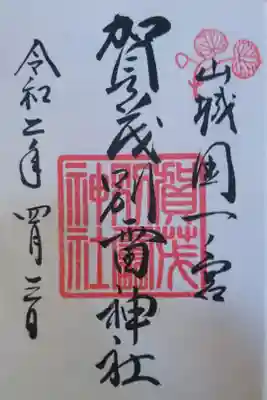 山城國一ノ宮
賀茂別雷神社
令和二年 四月三日
賀茂
別雷
神社